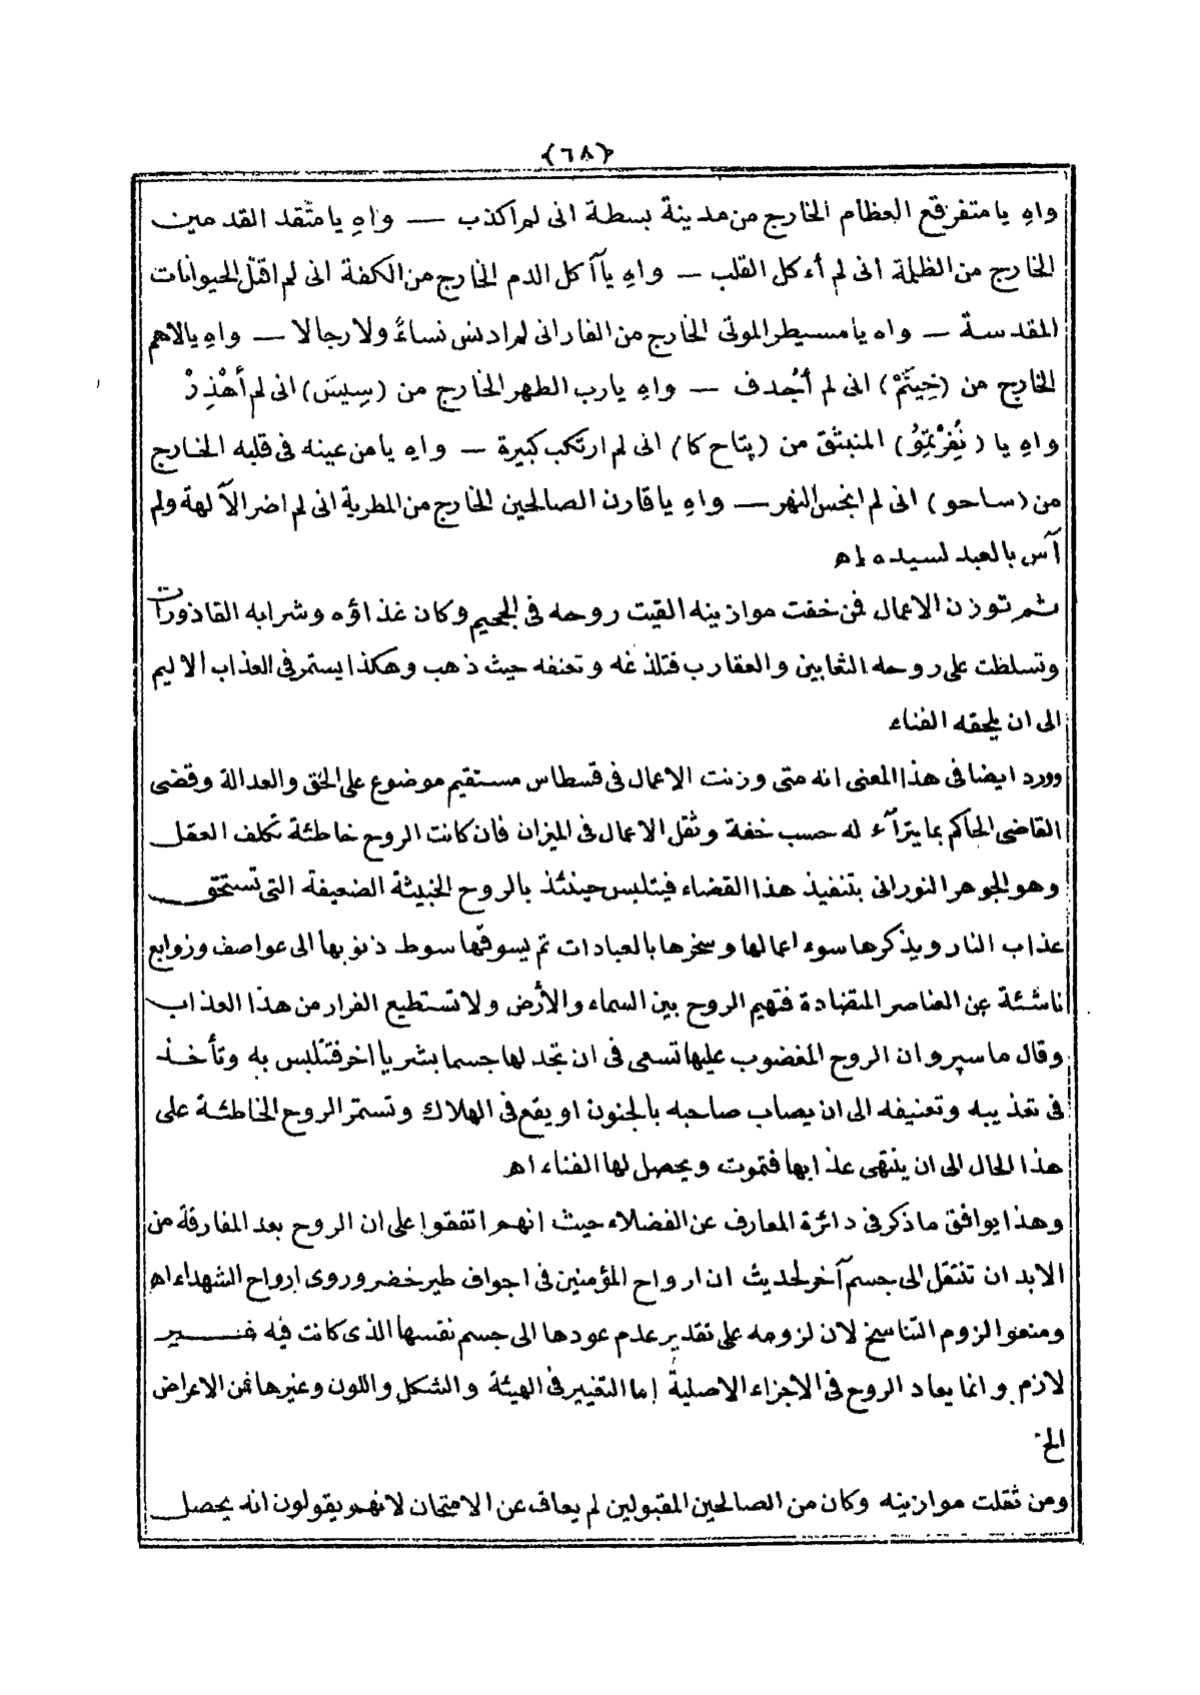 {٦٨}
واهِ يا متفرقع العظام الخارج من مدينة بسطة انى لم اكذب — واهِ يا متقد القدمين
الخارج من الظلمة انى لم أءكل القلب — واهِ ياآكل الدم الخارج من الكفة انى لم اقتل الحيوانات
المقدسة — واه يا مسيطر الموتى الخارج من الفار انى لم ادنس نساءً ولا رجالا — واهِ يالاهم
الخارج من (خِيَتْم) انى لم أجْدف — واهِ يارب الطهر الخارج من (سِيسَ) انى لم أهْذِرْ
واهِ يا (نُفِرْتِمُو) المنبثق من (پتاح كا) انى لم ارتكب كبيرة — واهِ يا من عينه فى قلبه الخارج
من (ساحو) انى لم انجس النهر — واهِ يا قارن الصالحين الخارج من المطرية انى لم اضر الآلهة ولم
آس بالعبد لسيده اه
ثم توزن الاعمال فمن خفت موازينه القيت روحه فى الجحيم وكان غذاؤه وشرابه القاذورات
وتسلطت على روحه الثعابين والعقارب فتلذغه وتعنفه حيث ذهب وهكذا يستمر فى العذاب الاليم
الى ان يلحقه الفناء
وورد ايضا فى هذا المعنى انه متى وزنت الاعمال فى قسطاس مستقيم موضوع على الحق والعدالة وقضى
القاضى الحاكم بما يترآء له حسب خفة وثقل الاعمال فى الميزان فان كانت الروح خاطئة تكلف العقل
وهو الجوهر النورانى بتنفيذ هذا القضاء فيتلبس حينئذ بالروح الخبيثة الضعيفة التى تستحق
عذاب النار ويذكرها سوء اعمالها وسخرها بالعبادات ثم يسوقها سوط ذنوبها الى عواصف وزوابع
ناشئة عن العناصر المتضادة فتهيم الروح بين السماء والأرض ولا تستطيع الفرار من هذا العذاب
وقال ماسپرو ان الروح المغضوب عليها تسعى فى ان تجد لها جسما بشريا اخر فتتلبس به وتأخذ
فى تعذيبه وتعنيفه الى ان يصاب صاحبه بالجنون او يقع فى الهلاك وتستمر الروح الخاطئة على
هذا الحال الى ان ينتهى عذابها فتموت ويحصل لها الفناء اه
وهذا يوافق ما ذكر فى دائرة المعارف عن الفضلاء حيث انهم اتفقوا على ان الروح بعد المفارقة من
الابدان تنتقل الى جسم آخر لحديث ان ارواح المؤمنين فى اجواف طير خضر وروى ارواح الشهداء اه
ومنعوا لزوم التناسخ لان لزومه على تقدير عدم عودها الى جسم نفسها الذى كانت فيه غير
لازم وانما يعاد الروح فى الاجزاء الاصلية إما التغيير فى الهيئة والشكل واللون وغيرها فمن الاعراض
الخ
ومن ثقلت موازينه وكان من الصالحين المقبولين لم يعاف عن الامتحان لانهم يقولون انه يحصل